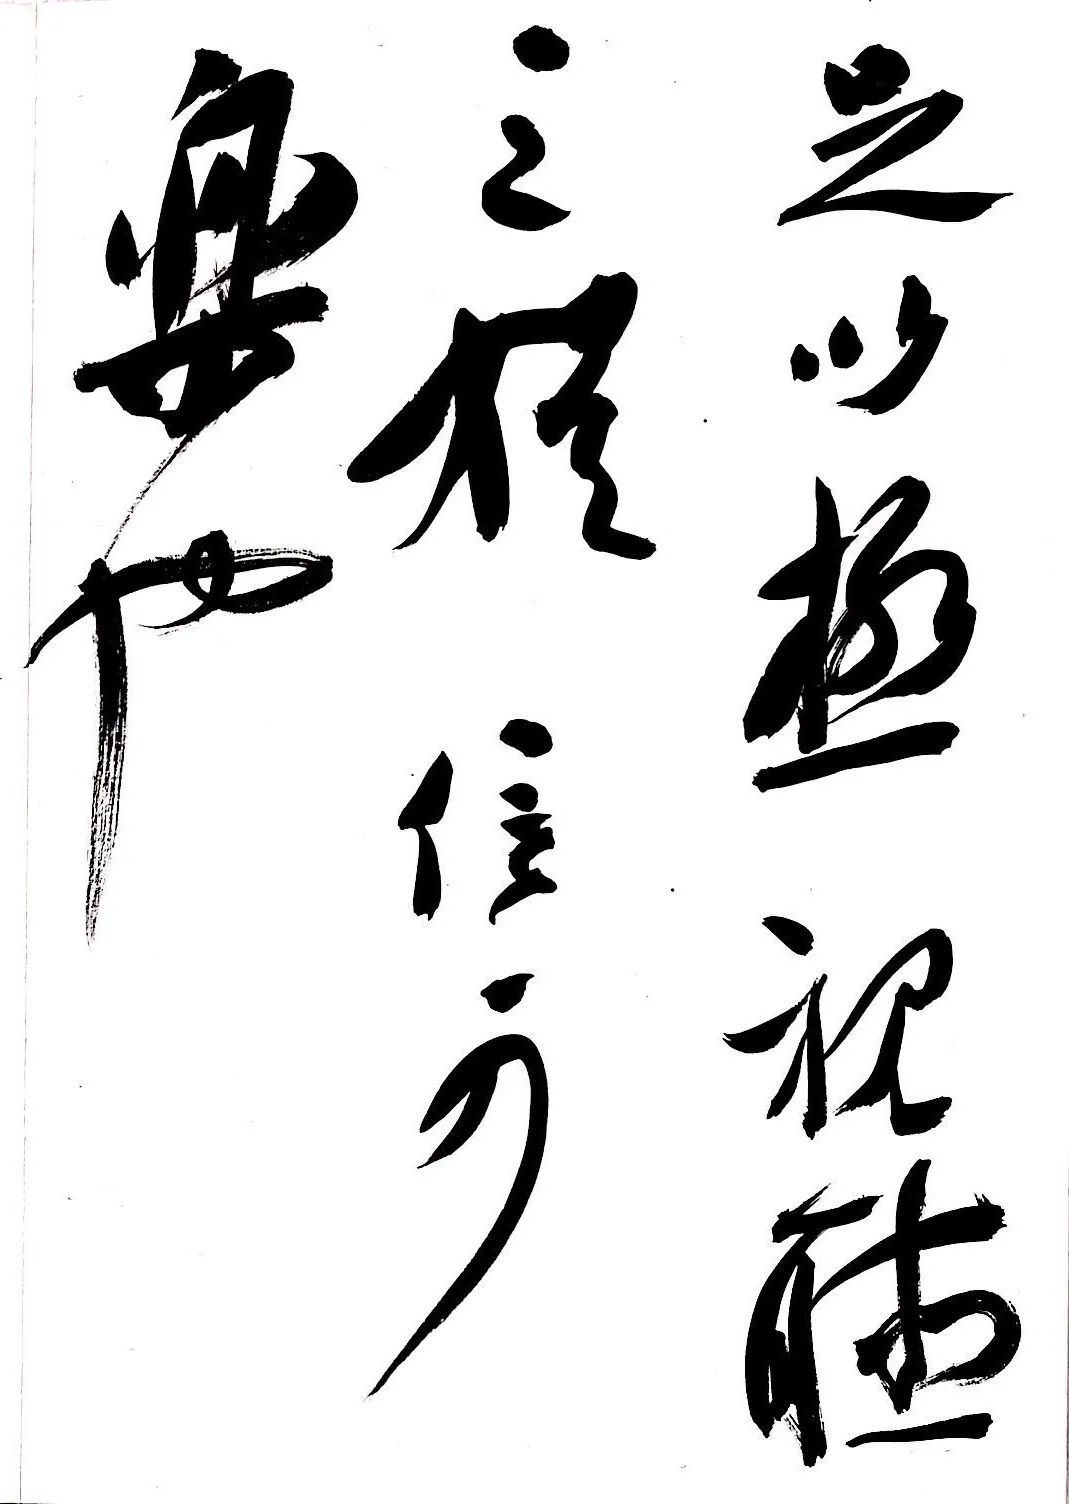 足以極視聽
之娱信可
樂也